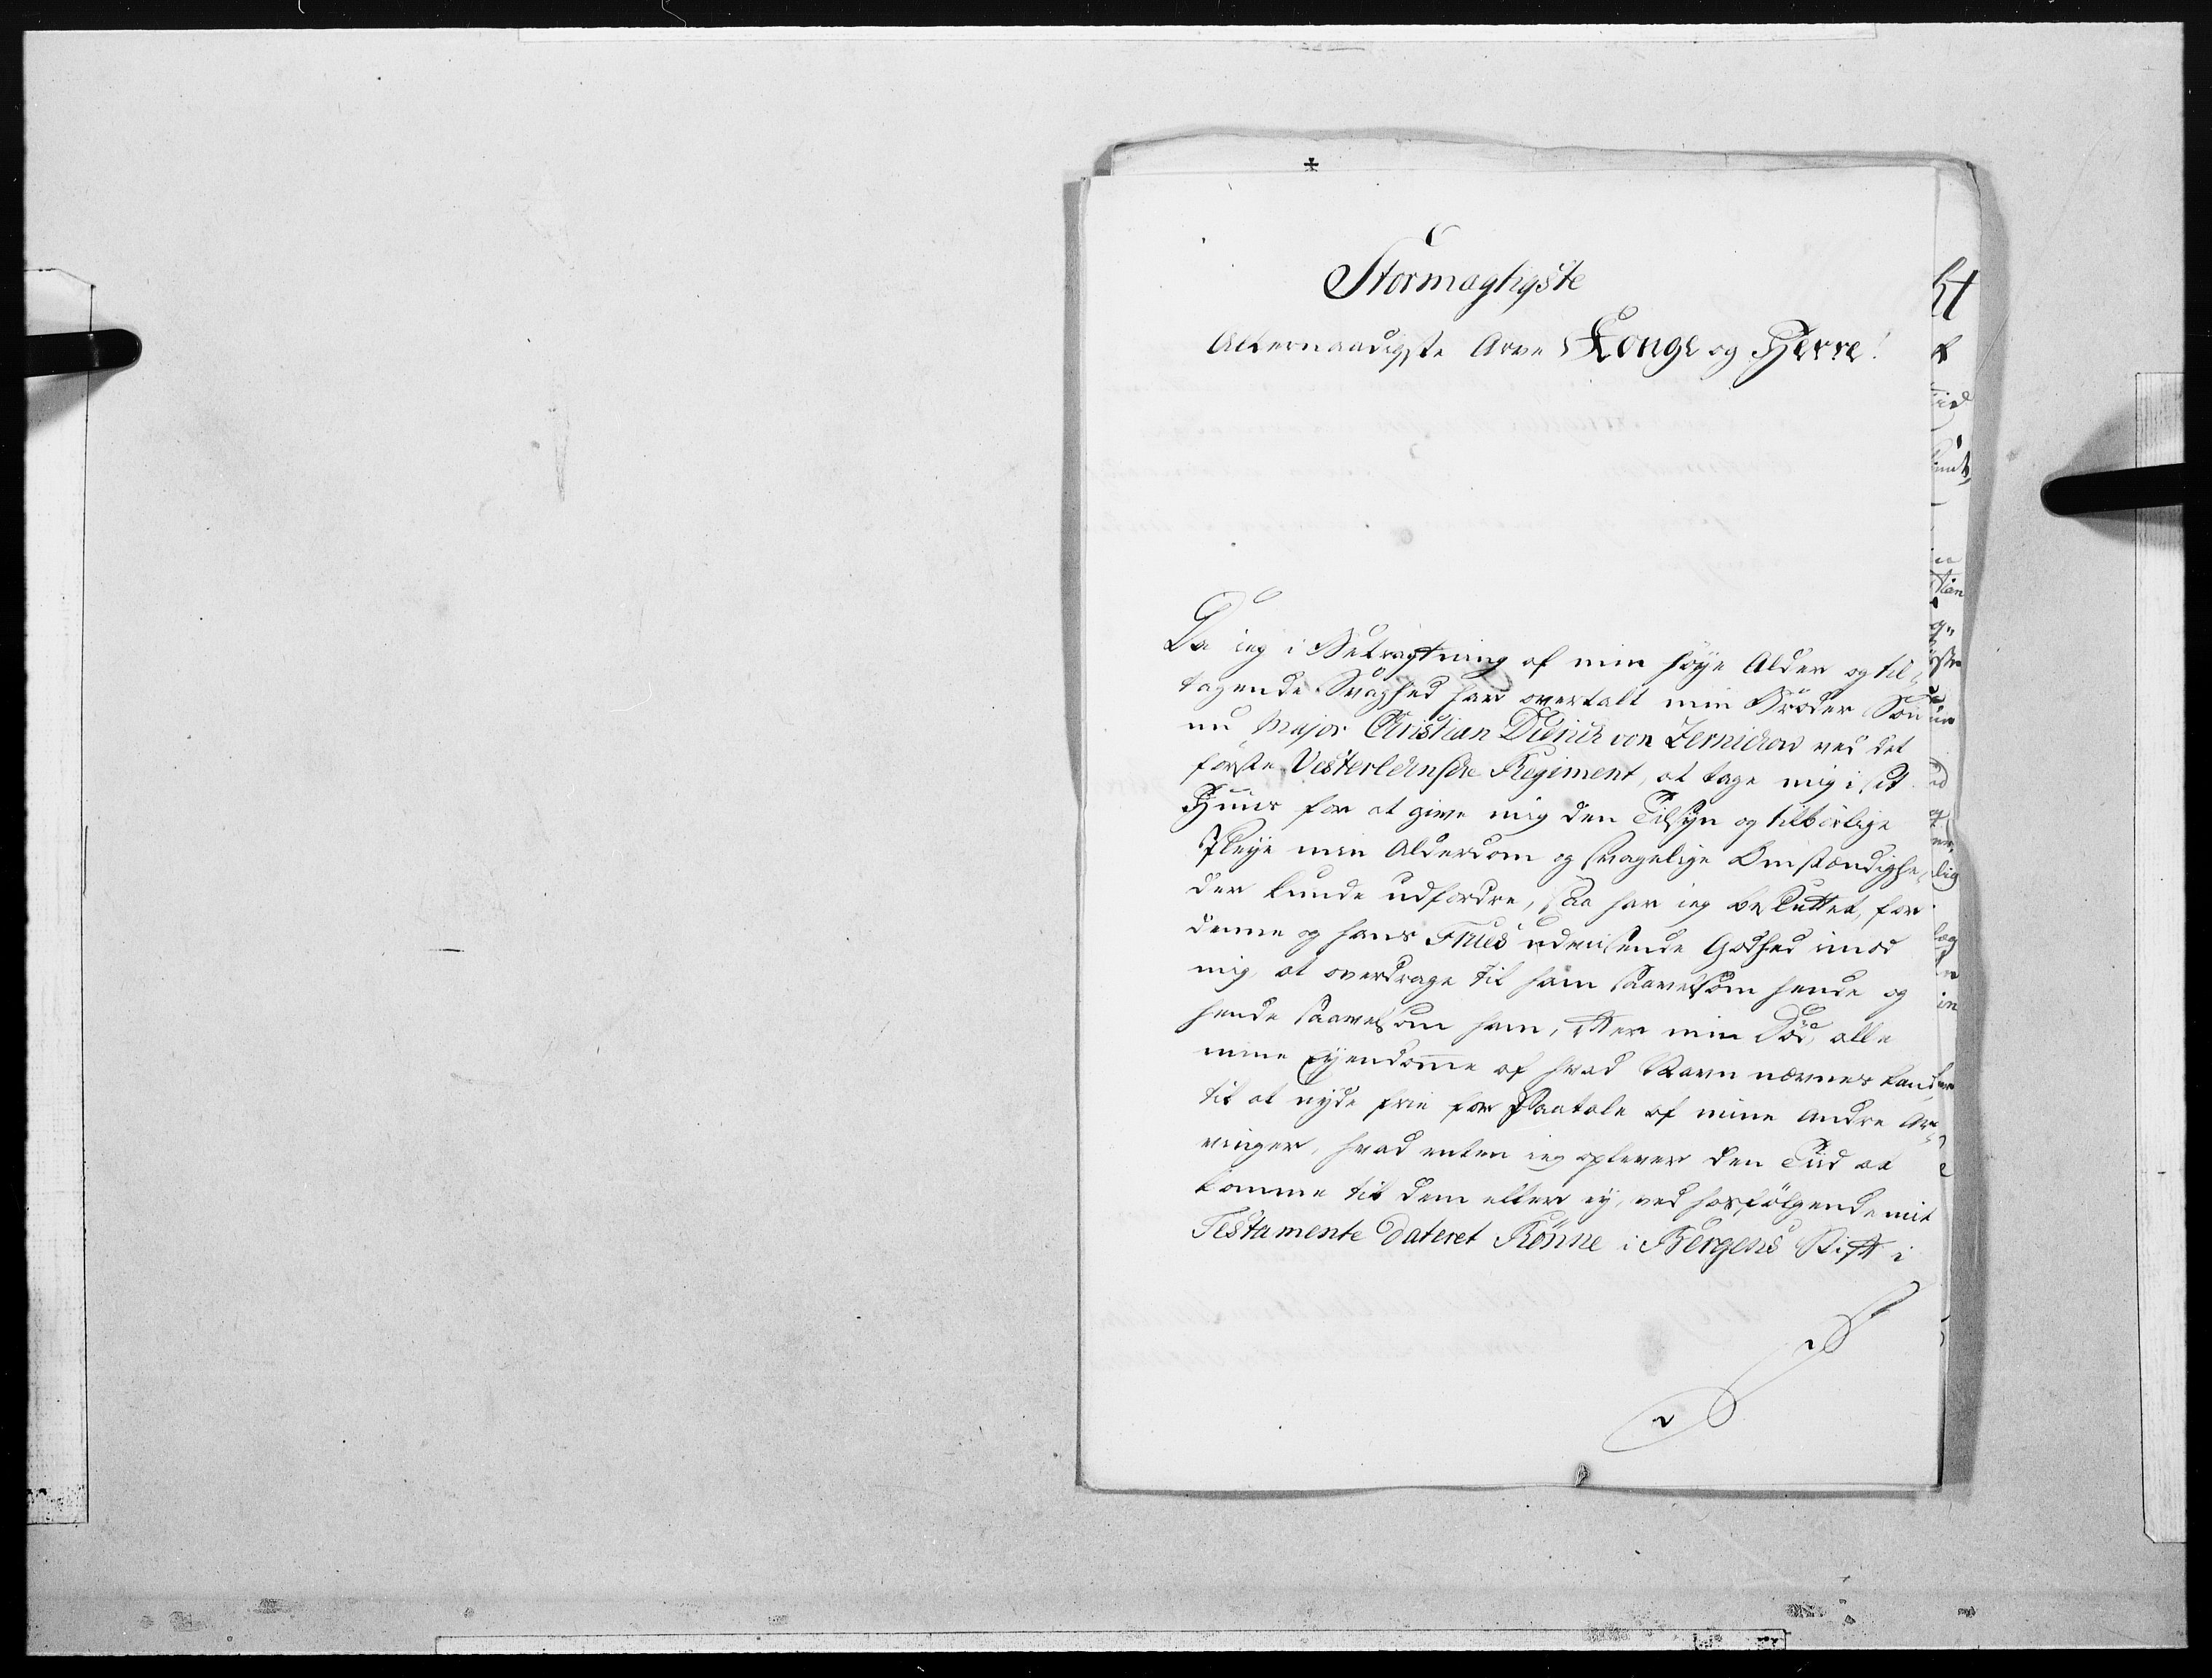 Stormagtigste
Allernaadigste Arve Konge og Herre!
Da ieg i Betragtning af min høye Alder og til-
tagende Svaghed har overtalt min Broder Søn
nu Major Christian Diderich von Zernichow ved det
første Vesterlehnske Regiment, at tage mig i sit
Huus for at give mig den Tilsyn og tilbørlige
Pleye min Alderdom og svagelige Omstændighe-
der kunde udfordre, saa har ieg besluttet, for
denne og hans Frues udviisende Godhed imod
mig, at overdrage til ham saavelsom hende og
hende saavelsom ham, efter min Død, alle
mine Eyendomme af hvad Navn nævnes kand,
til at nyde frie for Paatale af mine andre Ar-
vinger, hvad enten ieg oplever den Tiid at
komme til dem eller ey, ved hosfølgende mit
Testamente dateret Rönne i Bergens Stift i